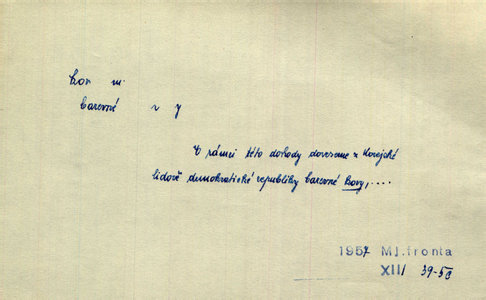 kov m.
barevné v y
V rámci této dohody dovezeme z Korejské
lidově demokratické republiky barevné kovy,....
1957 Ml.fronta
XII/ 39-50